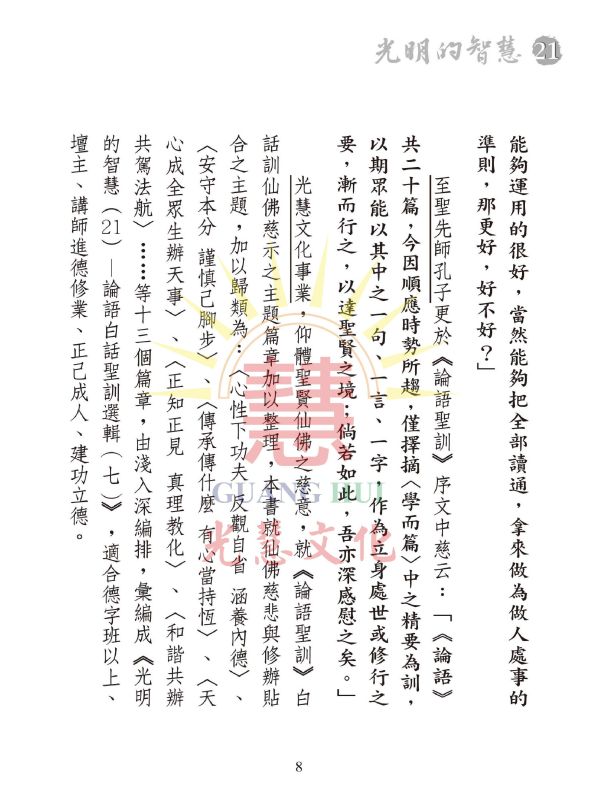 光明的智慧 21
能夠運用的很好，當然能夠把全部讀通，拿來做為做人處事的
準則，那更好，好不好？」
至聖先師孔子更於《論語聖訓》序文中慈云：「《論語》
共二十篇，今因順應時勢所趨，僅擇摘〈學而篇〉中之精要為訓，
以期眾能以其中之一句、一言、一字，作為立身處世或修行之
要，漸而行之，以達聖賢之境；倘若如此，吾亦深感慰之矣。」
光慧文化事業，仰體聖賢仙佛之慈意，就《論語聖訓》白
話訓仙佛慈示之主題篇章加以整理，本書就仙佛慈悲與修辦貼
合之主題，加以歸類為：〈心性下功夫 反觀自省 涵養內德〉、
〈安守本分 謹慎己腳步〉、〈傳承傳什麼 有心當持恆〉、〈天
心成全眾生辦天事〉、〈正知正見 真理教化〉、〈和諧共辦
共駕法航〉……等十三個篇章，由淺入深編排，彙編成《光明
的智慧（21）—論語白話聖訓選輯（七）》，適合德字班以上、
壇主、講師進德修業、正己成人、建功立德。
慧
GUANG HUI
光慧文化
8